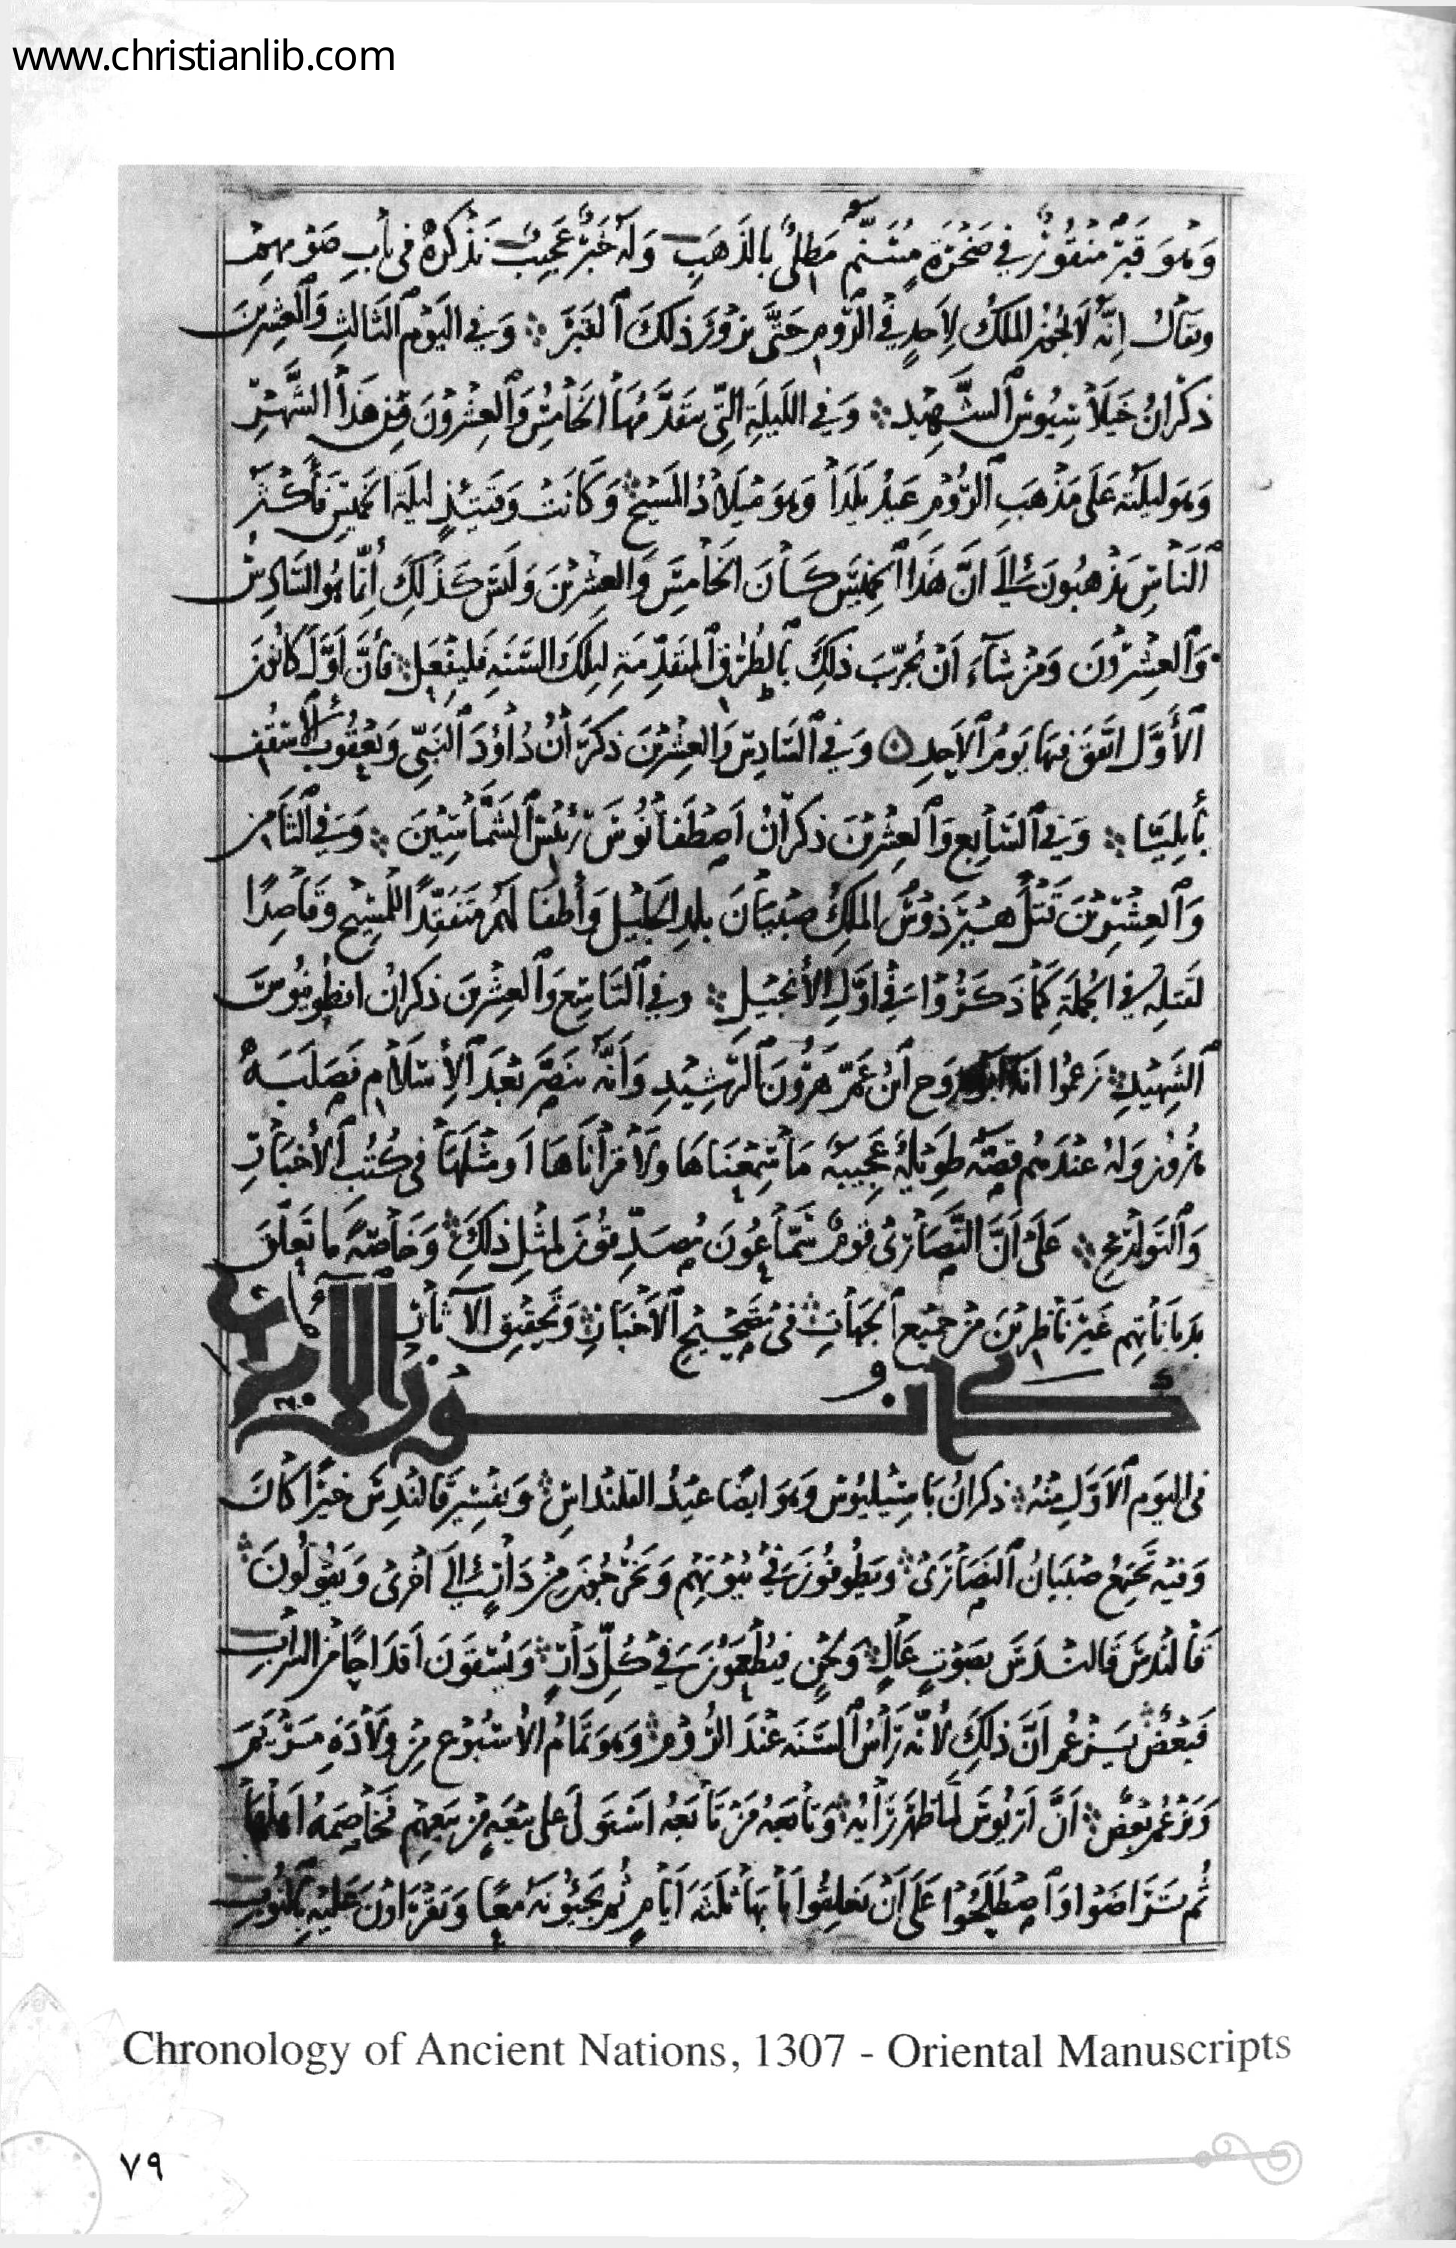 www.christianlib.com
وهو قبر منقور في صخرة مسنم مطلى بالذهب وله خبر عجيب نذكره في باب صومهم
ويقال انه لا يجوز للملك لاحد في الروم حتى يزور ذلك القبر وفي اليوم الثالث والعشرين
ذكران الشهيد وفي الليلة التي يتقدمها الخامس والعشرون من هذا الشهر
وهو ليلته على مذهب الروم عيد يلدا وهو ميلاد المسيح وكانت وقتئذ ليلة الخميس فأكثر
الناس يذهبون الى ان هذا الخميس كان الخامس والعشرين وليس كذلك انما هو السادس
والعشرون ومن شاء ان يجرب ذلك بالطرق المتقدمة لتلك السنة فليفعل فأن اول كانون
الأول اتفق فيها يوم الاحد وفي السادس والعشرين ذكران داود النبي ويعقوب الاسقف
بأيليا وفي السابع والعشرين ذكران اصطفانوس رئيس الشماسين وفي الثامن
والعشرين قتل هيرذوس الملك صبيان بلد الخليل وأطفالهم متفقدا للمسيح وقاصدا
لقتله في الجملة كما ذكروا في اول الأنجيل وفي التاسع والعشرين ذكران انطونيوس
الشهيد زعموا انه ابو روح ابن عم هرون الرشيد وانه تنصر بعد الأسلام فصلبه
هرون وله عندهم قصة طويلة عجيبة ما سمعناها ولا قرأناها او مثلها في كتب الأخبار
والتواريخ على ان النصارى قوم سماعون مصدقون لمثل ذلك وخاصة ما تعلق
بدياناتهم غير ناظرين من جميع الجهات في تصحيح الاخبار وتحقيق الآثار
كانون الآخر
في اليوم الاول منه ذكران باسيليوس وهو ايضا عيد القلنداس وتفسير قالندس خيرا كان
وفيه تجتمع صبيان النصارى ويطوفون في بيوتهم ويخرجون من دار الى اخرى ويقولون
قالندس قالندس بصوت عال ولحن فيطعمون في كل دار ويسقون اقداحا من الشراب
فبعض يزعم ان ذلك لأنه رأس السنة عند الروم وهو تمام الأسبوع من ولادة مريم
وزعم بعض ان اريوس لما ظهر رأيه وتابعه من تابعه استولى على بيعة من بيعهم فخاصمه اهلها
ثم تراضوا واصطلحوا على ان يغلقوا بابها ثلثة ايام ثم يجيئونه معا ويقرءون عليه بالنوب
Chronology of Ancient Nations, 1307 - Oriental Manuscripts
٧٩